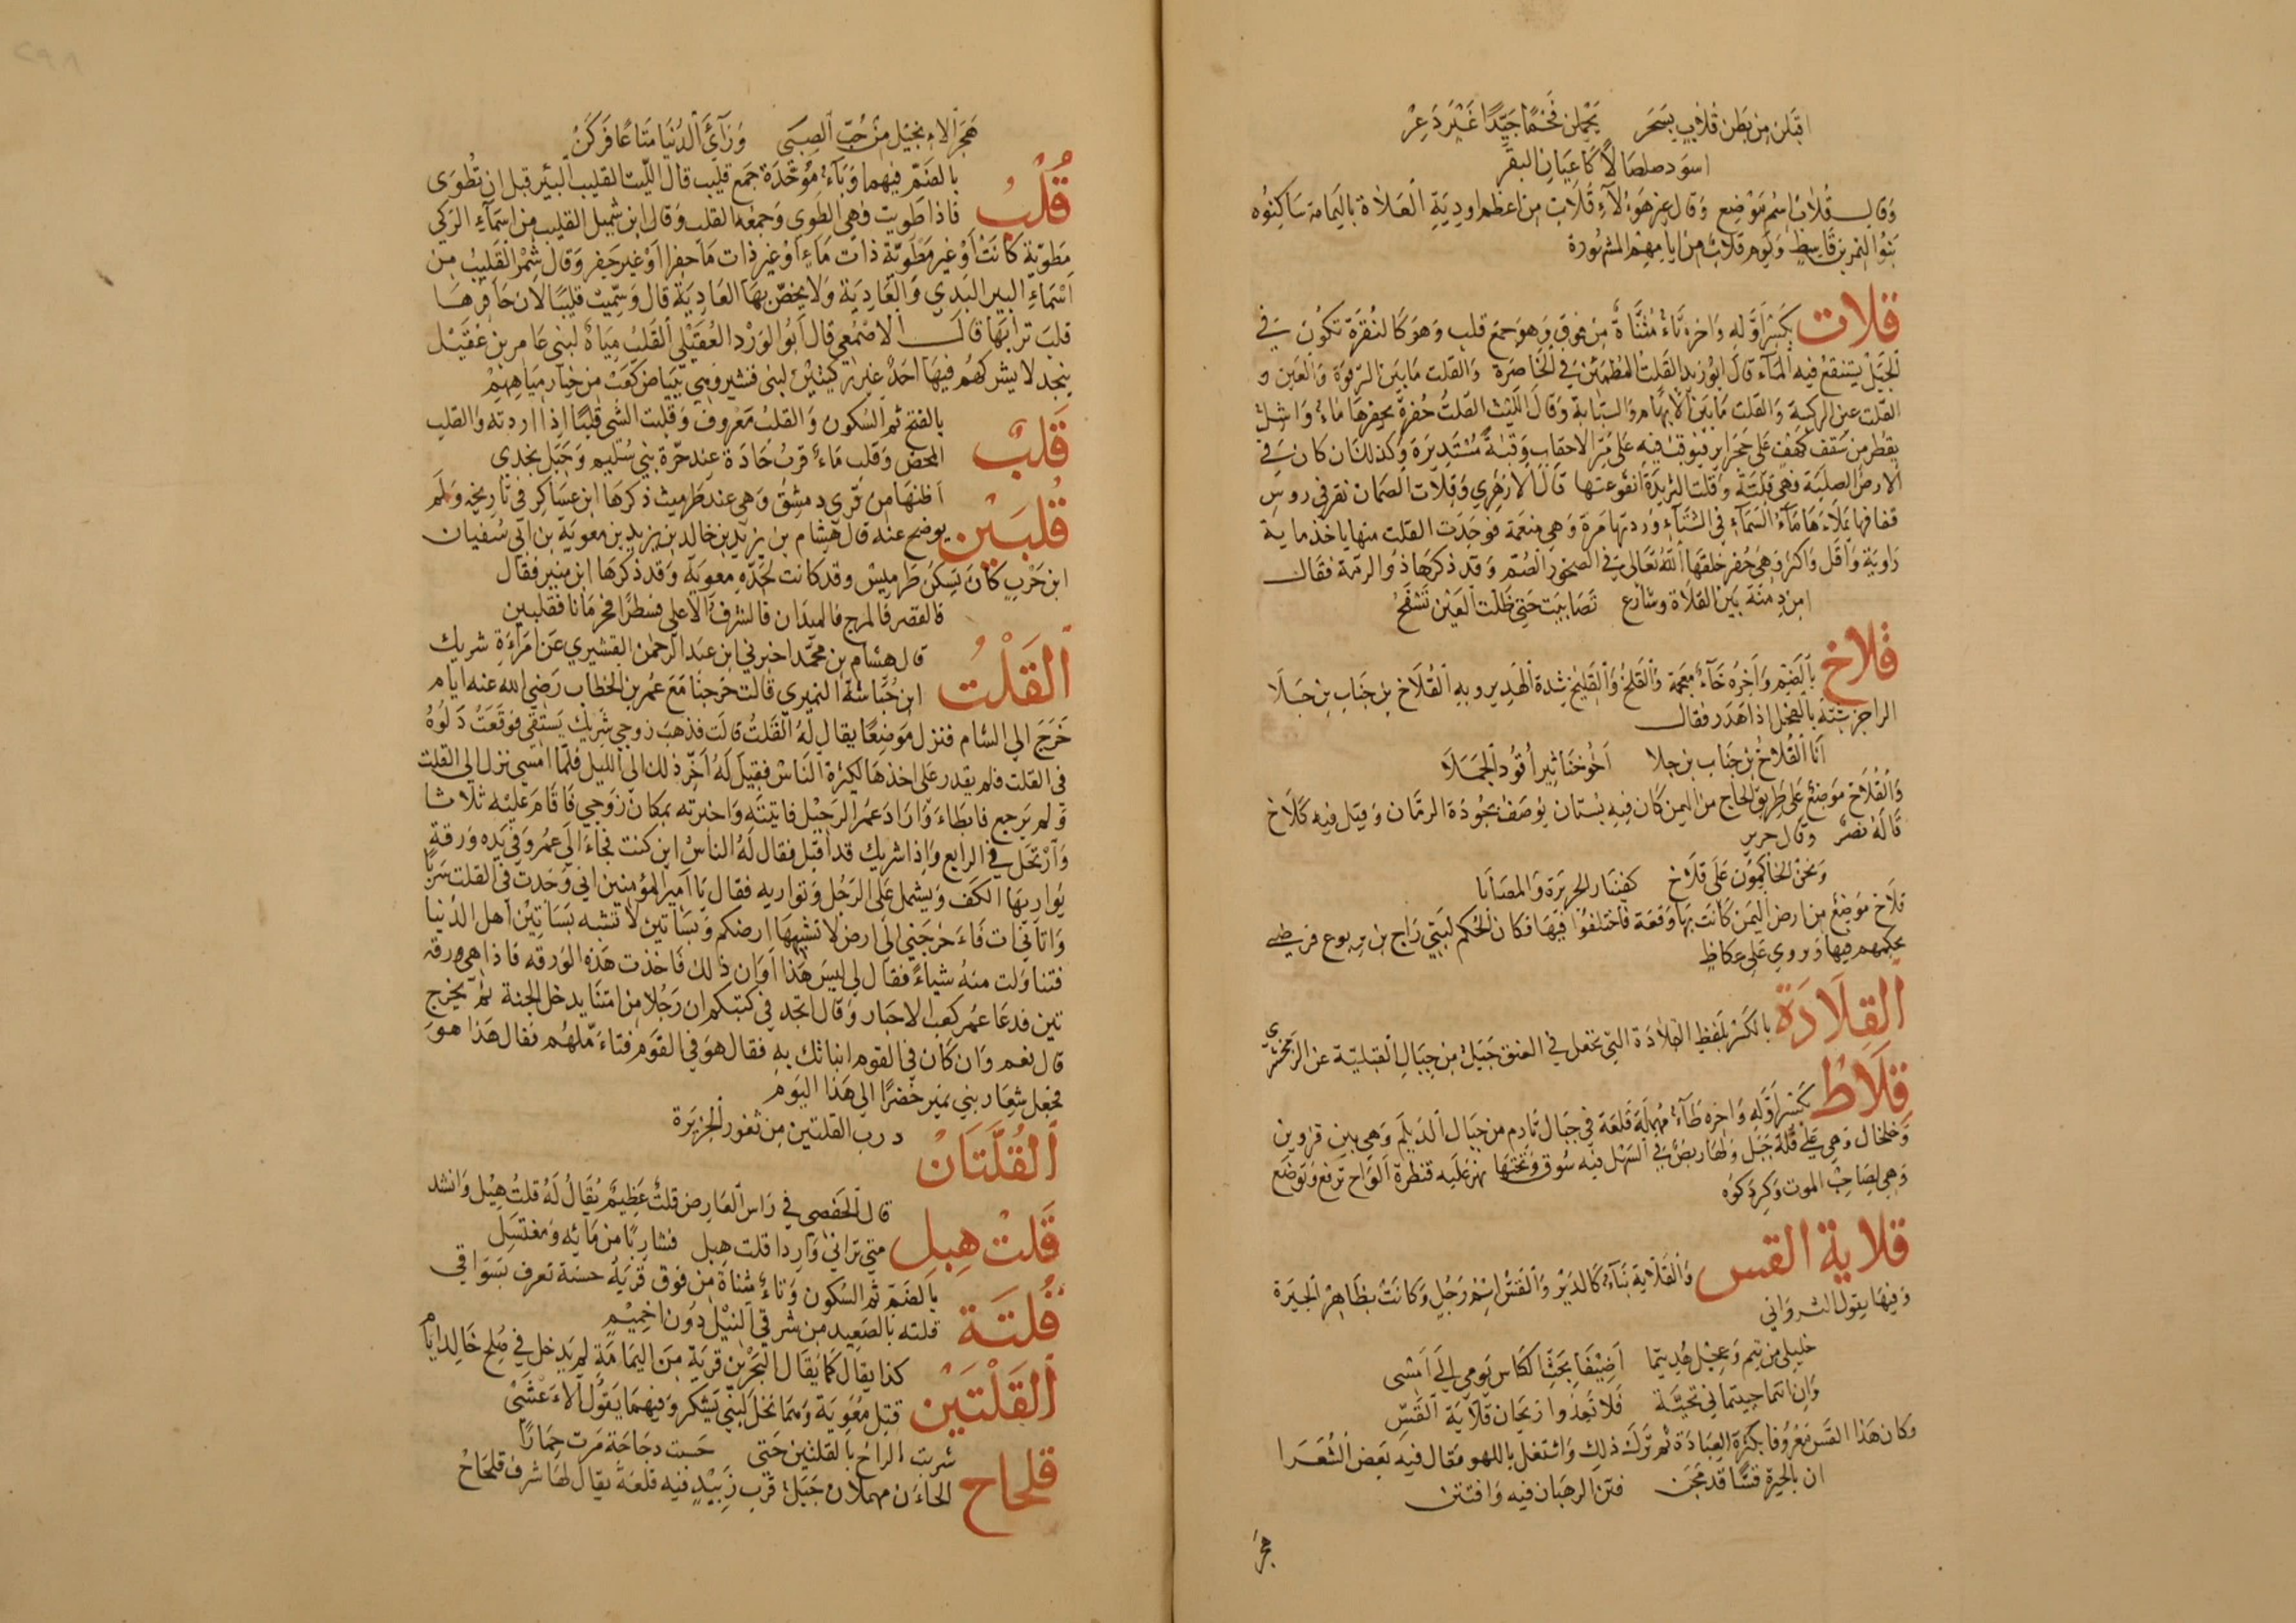 اقبلن من بطن قلاب بسحر يحملن فحما جيدا غير دعر
اسود صلصالا كاعيان البقر
وقال قلاب اسم موضع وقال غير هولاء قلاب من اعظم اودية العلاة باليمامة ساكنوه
بنو النمر بن قاسط ويوم قلاب من ايامهم المشهورة
قلات بكسر اوله واخره تاء مثناة من فوق وهو جمع قلب وهو كالنقرة تكون في
الجبل يستنقع فيه الماء قال ابو زيد القلت المطمئن في الخاصرة والقلت ما بين الترقوة والعين و
القلت عين الركبة والقلت ما بين الابهام والسبابة وقال الليث القلت حفرة يحفرها ماء واشل
يقطر من سقف كهف على حجر اير فيوقب فيه على مر الاحقاب وقبة مستديرة وكذلك ان كان في
الارض الصلبة فهي قلتة وقلت الثريدة انقوعتها قال الازهري وقلات الصمان نقر في روس
قفافها يملاءها ماء السماء في الشتاء وردتها مرة وهي مفعمة فوجدت القلت منها ياخذ ماية
راوية واقل واكثر وهي حفر خلقها الله تعالى في الصخور الصم وقد ذكرها ذو الرمة فقال
امن دمنة بين القلاة وشارع تصابيت حتى ظلت العين تسفح
قلاخ بالضم واخره خاء معجمة والقلخ والقليخ شدة الهدير وبه القلاخ بن جناب بن جلا
الراجز شبه بالفحل اذا هدر فقال
انا القلاخ بن جناب بن جلا اخو خناثير اقود الجملا
والقلاخ موضع على طريق الحاج من اليمن كان فيه بستان يوصف بجودة الرمان وقيل فيه كلاخ
قاله نصر وقال جرير
ونحن الحاكمون على قلاخ كفينا الجريرة والمصابا
قلاخ موضع من ارض اليمن كانت بها وقعة فاختلفوا فيها فكان الحكم لبني رباح بن يربوع فرضي
بحكمهم فيها ويروي على عكاظ
القلادة بالكسر بلفظ القلادة التي تجعل في العنق جبل من جبال القبلية عن الزمخشري
قلاط بكسر اوله واخره طاء مهملة قلعة في جبال تارم من جبال الديلم وهي بين قزوين
وخلخال وهي على قلة جبل ولها ربض في السهل فيه سوق وتحتها نهر عليه قنطرة الواح ترفع وتوضع
وهي لصاحب الموت وكردكوه
قلاية القس والقلاية بناء كالدير والقس اسم رجل وكانت بظاهر الحيرة
وفيها يقول الثرواني
خليلي من تيم وعجل هديتما اضيفا بحث الكاس يومي الى امسي
وان انتما حييتماني تحية فلا تعدوا ريحان قلاية القس
وكان هذا القس معروفا بكثرة العبادة ثم ترك ذلك واشتغل باللهو فقال فيه بعض الشعرا
ان بالحيرة قسا قد مجن فتن الرهبان فيه وافتتن
هجر
هجر الانجيل من حب الصبى ورآى الدنيا متاعا فركن
قلب بالضم فيهما وباء موحدة جمع قليب قال الليث القليب البئر قبل ان تطوى
فاذا طويت فهي الطوي وجمعه القلب وقال ابن شميل القليب من اسماء الركي
مطوية كانت او غير مطوية ذات ماء او غير ذات ماء حفرا او غير حفر وقال شمر القليب من
اسماء البير البدي والعادية ولا يخص بها العادية قال وسميت قليبا لان حافرها
قلب ترابها قال الاصمعي قال ابو الورد العقيلي القلب مياه لبني عامر بن عقيل
بنجد لا يشركهم فيها احد غير ركيتين لبني قشير وهي ببياض كعب من خيار مياههم
قلب بالفتح ثم السكون والقلب معروف وقلبت الشي قلبا اذا اردته والقلب
المحض وقلب ماء قرب حاذة عند حرة بني سليم وجبل نجدي
قلبين اظنها من قرى دمشق وهي عند طرميث ذكرها ابن عساكر في تاريخه ولم
يوضح عنه قال هشام بن يزيد بن خالد بن يزيد بن معوية بن ابي سفيان
ابن حرب كان يسكن طرميس وقد كانت لجده معوية وقد ذكرها ابن منير فقال
فالقصر فالمرج فالميدان فالشرف الاعلى فسطرا فجرمانا فقلبين
القلت قال هشام بن محمد اخبرني ابن عبد الرحمن القشيري عن امراءة شريك
ابن حباشة النميري قالت خرجنا مع عمر بن الخطاب رضي الله عنه ايام
خرج الى الشام فنزل موضعا يقال له القلت قالت فذهب زوجي شريك يستقي فوقعت دلوه
في القلت فلم يقدر على اخذها لكثرة الناس فقيل له اخر ذلك الى الليل فلما امسى نزل الى القلت
ولم يرجع فابطاء واراد عمر الرحيل فاتيته واخبرته بمكان زوجي فاقام عليه ثلاثا
وارتحل في الرابع واذا شريك قد اقبل فقال له الناس اين كنت فجاء الى عمر وفي يده ورقة
يواريها الكف ويشمل على الرجل وتواريه فقال يا امير المؤمنين اني وجدت في القلت سربا
واتاني ات فاءخرجني الى ارض لا تشبهها ارضكم وبساتين لا تشبه بساتين اهل الدنيا
فتناولت منه شياء فقال لي ليس هذا اوان ذلك فاخذت هذه الورقة فاذا هي ورقة
تين فدعا عمر كعب الاحبار وقال اتجد في كتبكم ان رجلا من امتنا يدخل الجنة ثم يخرج
قال نعم وان كان في القوم انباتك به فقال هو في القوم فتاءملهم فقال هذا هو
فجعل شعار بني نمير خضرا الى هذا اليوم
القلتان درب القلتين من ثغور الجزيرة
قلت هبل قال الحفصي في راس العارض قلت عظيم يقال له قلت هبل وانشد
متى تراني واردا قلت هبل فشاربا من مائه ومغتسل
قلتة بالضم ثم السكون وتاء مثناة من فوق قرية حسنة تعرف بسواقي
قلته بالصعيد من شرقي النيل دون اخميم
القلتين كذا يقال كما يقال البحرين قرية من اليمامة لم يدخل في صلح خالد ايام
قتل معوية وهما نخل لبني يشكر وفيهما يقول الاءعشى
شربت الراح بالقلتين حتى حسبت دجاجة مرت حمارا
قلحاح الحاءن مهملان جبل قرب زبيد فيه قلعة يقال لها شرف قلحاح